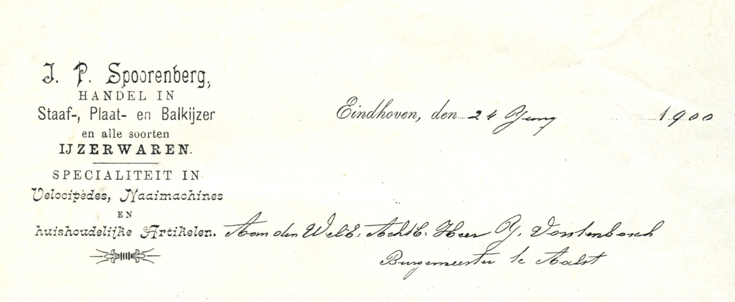 J. P. Spoorenberg,
HANDEL IN
Staaf-, Plaat- en Balkijzer
en alle soorten
IJZERWAREN.
SPECIALITEIT IN
Velocipèdes, Naaimachines
EN
huishoudelijke Artikelen.
Eindhoven, den 24 Juny 1900
Aan den WelE. Achtb. Heer J. Vorstenbosch
Burgemeester te Aalst